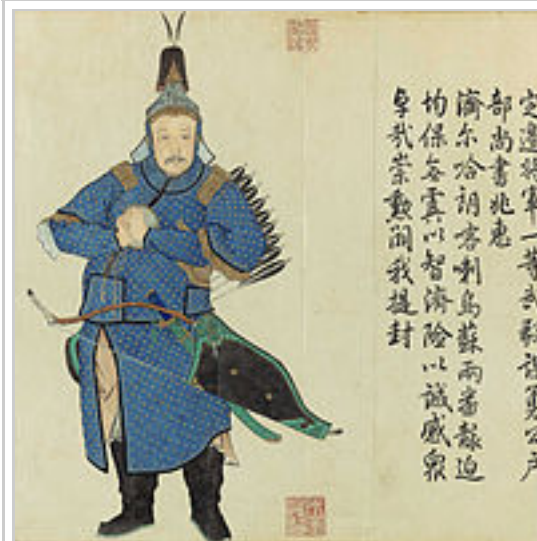 定邊將軍一等武毅謀勇公戶
部尚書兆惠
濟尔哈朗喀喇烏蘇兩番迫
均保無虞以智濟險以誠感衆
卓哉崇勲闢我提封